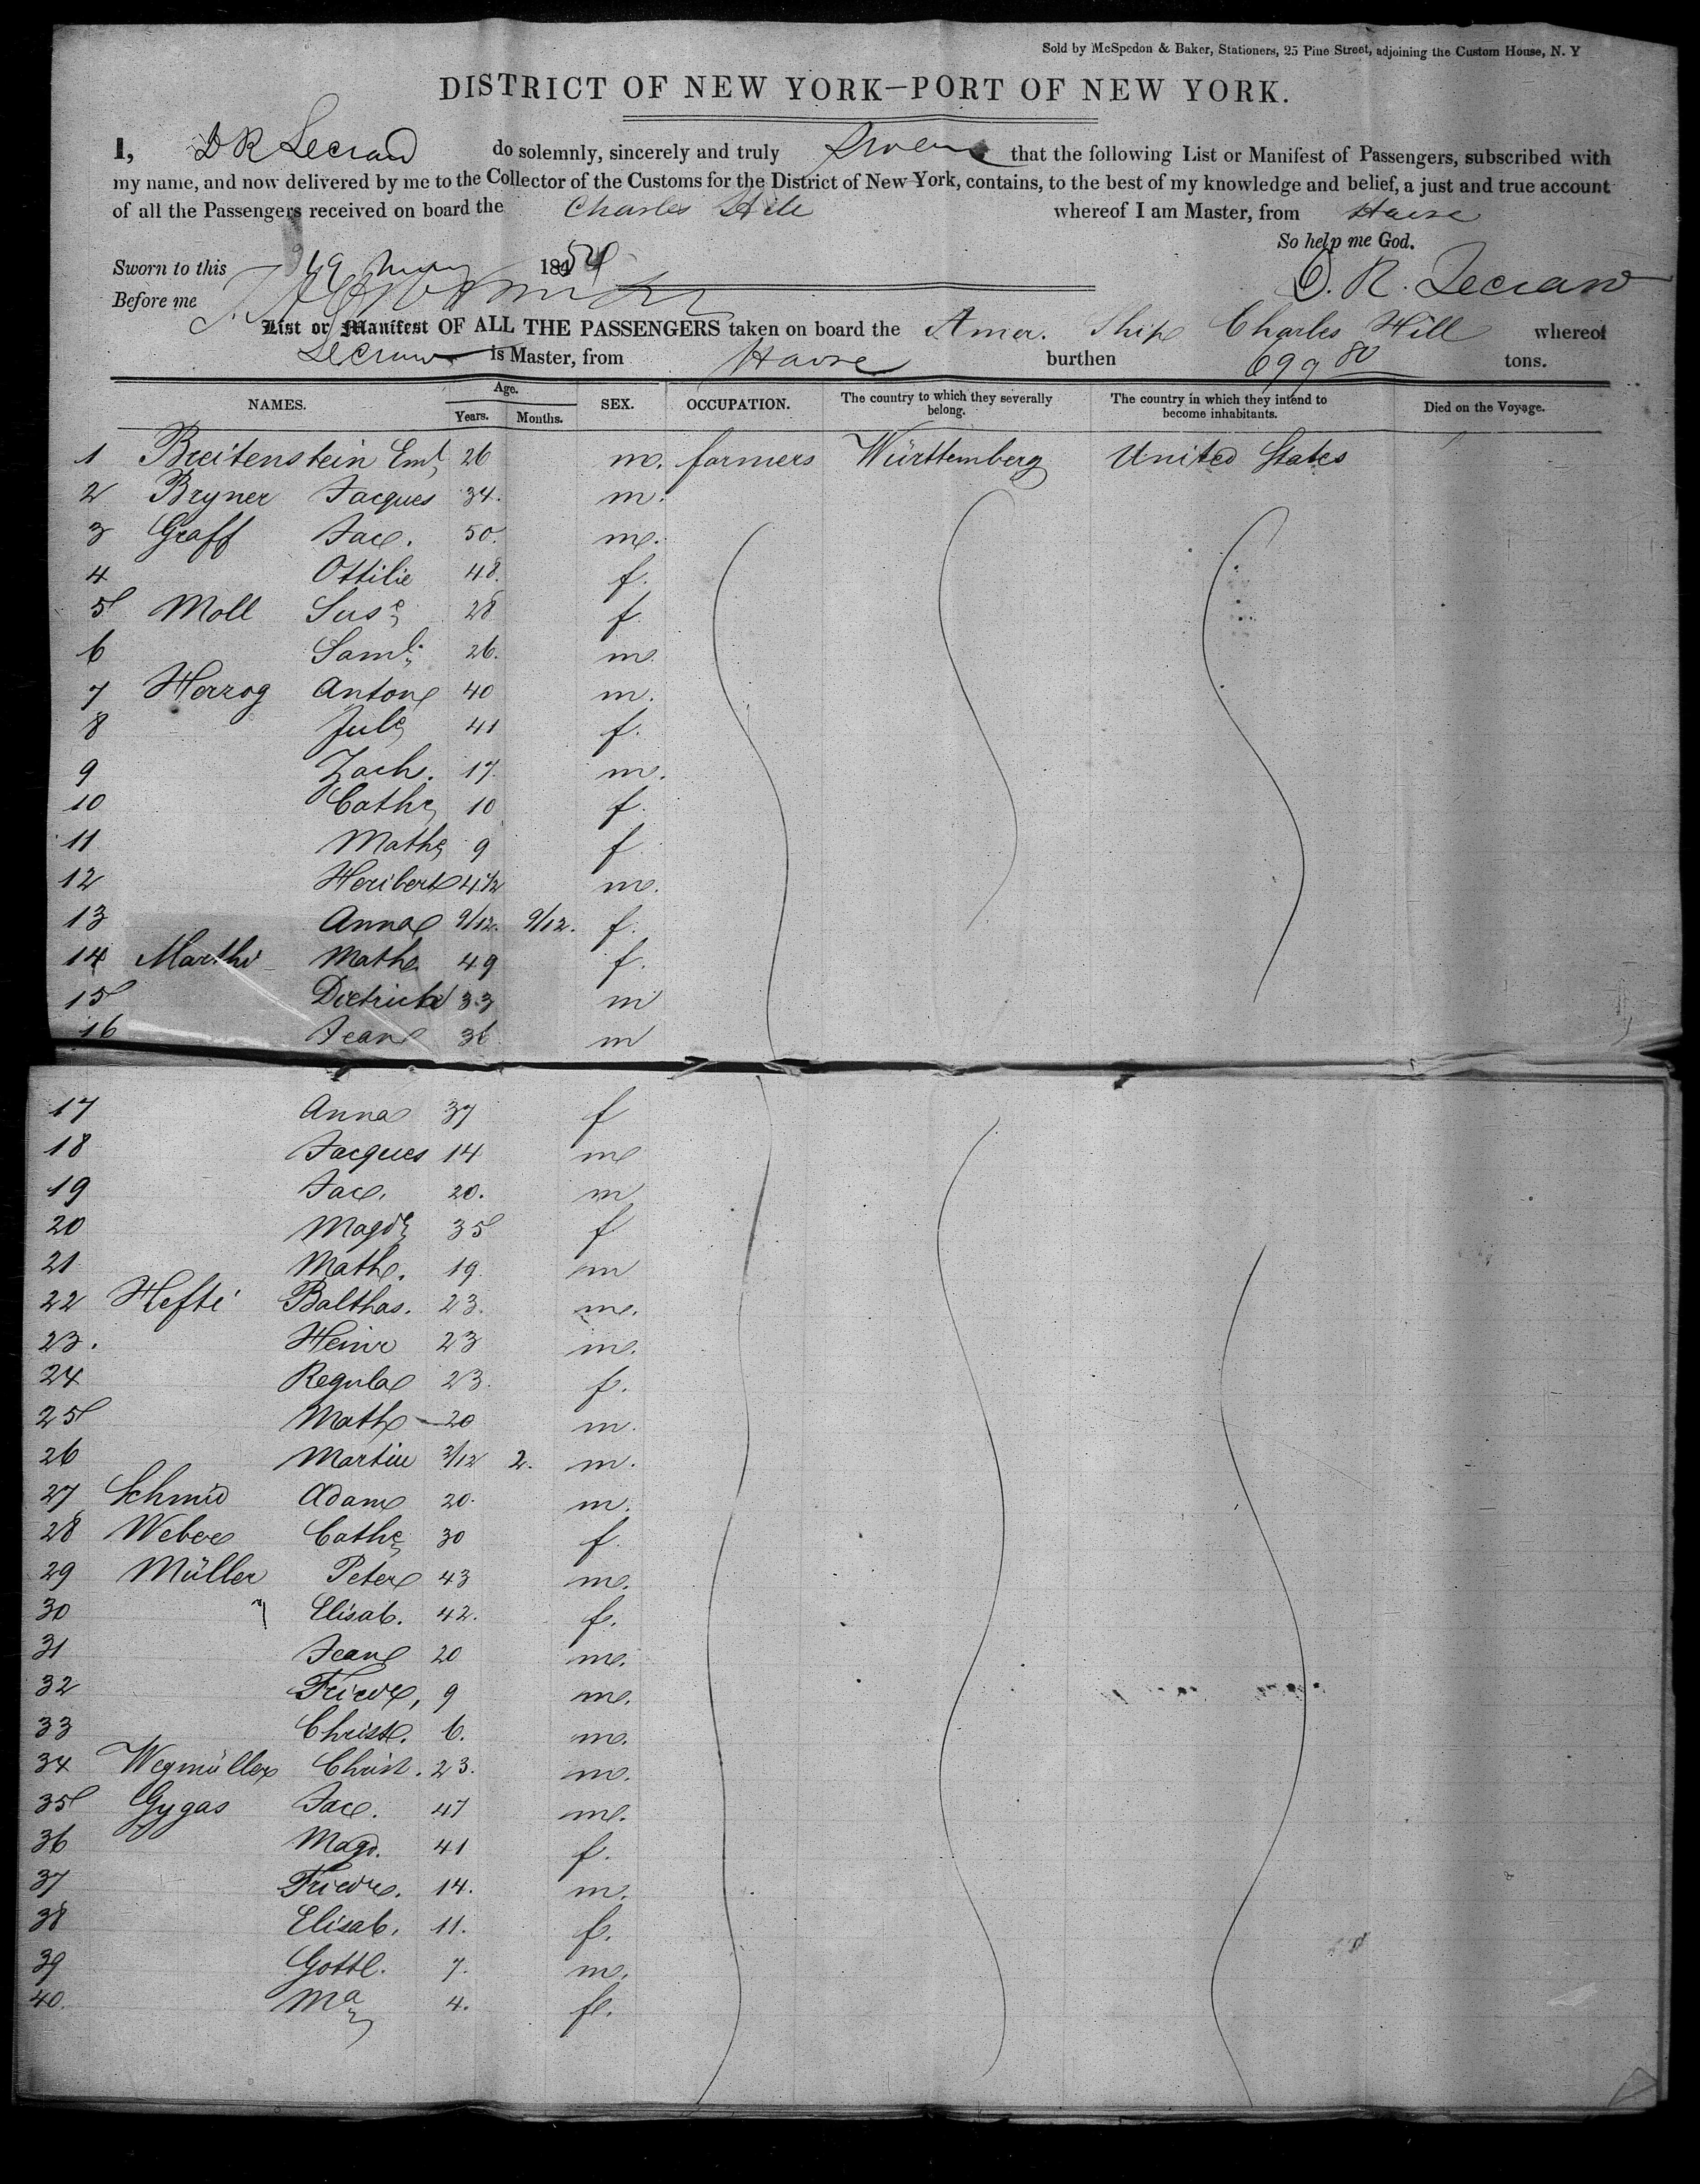 Sold by McSpedon & Baker, Stationers, 25 Pine Street, adjoining the Custom House, N. Y
DISTRICT OF NEW YORK—PORT OF NEW YORK.
I, D R Lecraw do solemnly, sincerely and truly Swear that the following List or Manifest of Passengers, subscribed with
my name, and now delivered by me to the Collector of the Customs for the District of New York, contains, to the best of my knowledge and belief, a just and true account
of all the Passengers received on board the Charles Hill whereof I am Master, from Havre
So help me God.
Sworn to this 19 1854
D. R. Lecraw
Before me
List or Manifest OF ALL THE PASSENGERS taken on board the Amer. Ship Charles Hill whereof
Lecraw is Master, from Havre burthen 699 80 tons.
NAMES. Age. Years. Months. SEX. OCCUPATION. The country to which they severally belong. The country in which they intend to become inhabitants. Died on the Voyage.
1 Breitenstein Eml 26 m. farmers Württemberg United States
2 Bryner Jacques 34. m.
3 Graff Jac. 50. m.
4 Ottilie 48. f.
5 Moll Suse 28 f.
6 Saml. 26. m
7 Herzog Anton 40 m.
8 Jule 41 f.
9 Zach. 17. m.
10 Cathe 10 f.
11 Mathe 9 f
12 Heribert 4 1/2 m.
13 Anna 9/12. 9/12. f.
14 Marthi Math. 49 f.
15 Dietrich 33 m
16 Jean 36 m
17 Anna 37 f
18 Jacques 14 m
19 Jac. 20. m
20 Magde 35 f
21 Math. 19. m
22 Hefti Balthas. 23. m.
23. Heinr 23 m.
24 Regula 23. f.
25 Math 20 m.
26 Martin 2/12 2. m.
27 Schmid Adam 20. m.
28 Weber Cathe 30 f.
29 Müller Peter 43 m.
30 " Elisab. 42. f.
31 Jean 20 m.
32 Friedr, 9 m.
33 Christ. 6. m.
34 Wegmüller Christ. 23. m.
35 Gygas Jac. 47 m.
36 Magd. 41 f.
37 Friedr. 14. m.
38 Elisab. 11. f.
39 Gottl. 7. m.
40. Ma 4. f.